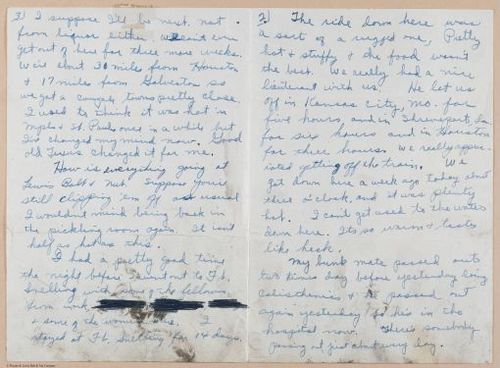 3) I suppose I'll be next. not
from liquor either. We can't even
get out of here for three more weeks.
We're about 30 miles from Houston
& 17 miles from Galveston so
we got a couple towns pretty close.
I used to think it was hot in
Mpls & St. Paul once in a while but
I've changed my mind now. Good
old Texas changed it for me.
How is everything going at
Lewis Bolt & Nut. Suppose you're
still clipping 'em off as usual
I wouldn't mind being back in
the pickling room again. It isn't
half as hot as this.
I had a pretty good time
the night before I went out to Ft.
Snelling with some of the fellows
from work
& some of the women. I
stayed at Ft. Snelling for 14 days.
2) The ride down here was
a sort of a rugged one, Pretty
hot & stuffy & the food wasn't
the best. We really had a nice
lieutenant with us. He let us
off in Kansas City, Mo. for
five hours, and in Shreveport, La
for six hours and in Houston
for three hours. We really appre-
ciated getting off the train. We
got down here a week ago today about
three o'clock, and it was plenty
hot. I can't get used to the water
down here. It's so warm & tastes
like heck.
My bunk mate passed out
two times day before yesterday doing
calisthenics & he passed out
again yesterday so he's in the
hospital now. There's somebody
passing out just about every day.